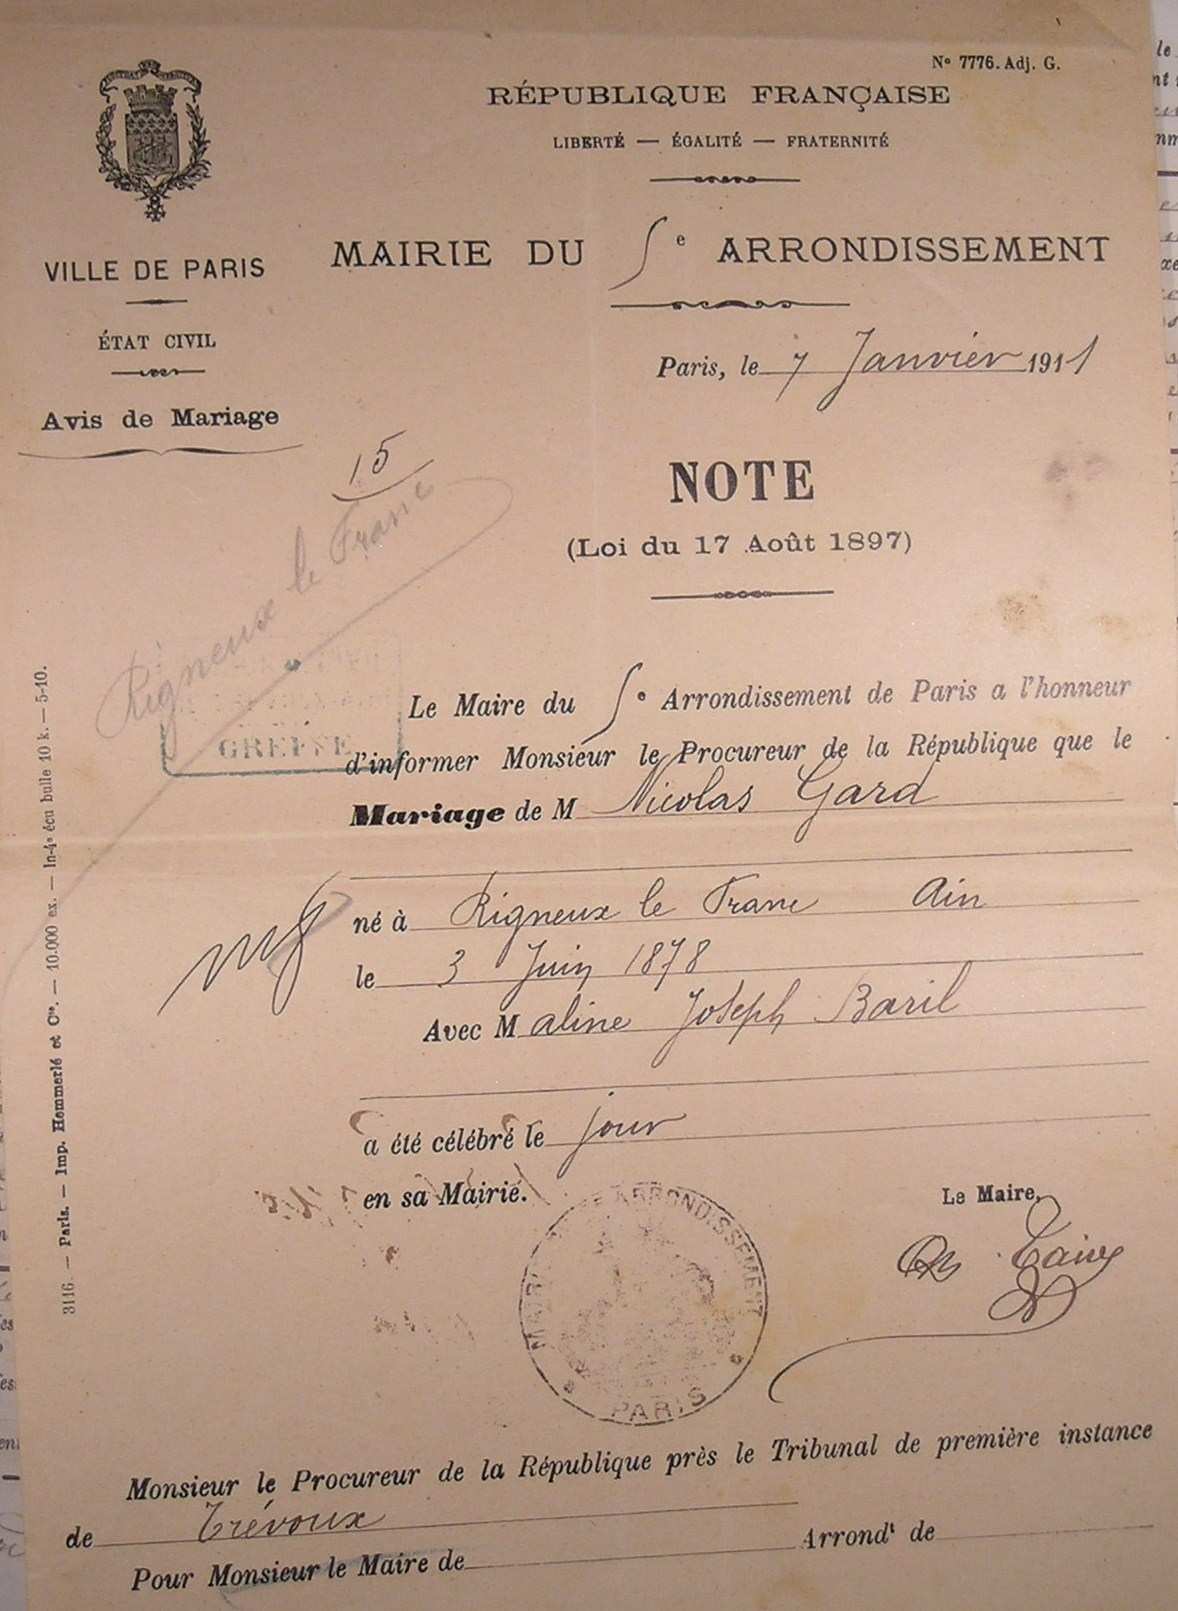 No 7776. Adj. G.
RÉPUBLIQUE FRANÇAISE
LIBERTÉ — ÉGALITÉ — FRATERNITÉ
VILLE DE PARIS
MAIRIE DU 5e ARRONDISSEMENT
ÉTAT CIVIL
Paris, le 7 Janvier 1911
Avis de Mariage
15
NOTE
Rigneux le Franc
(Loi du 17 Août 1897)
GREFFE
Le Maire du 5e Arrondissement de Paris a l'honneur
d'informer Monsieur le Procureur de la République que le
Mariage de M Nicolas Gard
né à Rigneux le Franc Ain
le 3 Juin 1878
Avec M aline Joseph Baril
a été célébré le jour
en sa Mairie.
Le Maire,
MAIRIE ARRONDISSEMENT
PARIS
Monsieur le Procureur de la République près le Tribunal de première instance
de Trévoux Arrondt de
Pour Monsieur le Maire de
3116. — Paris. — Imp. Hemmerlé et Cie. — 10.000 ex. — In-4o écu bulle 10 k. — 5-10.